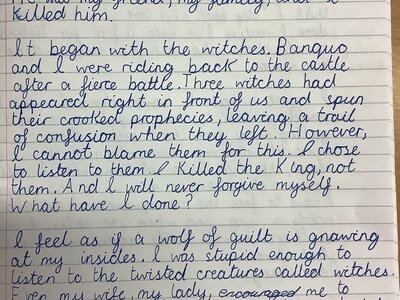 was my friend, my family, and I
killed him.
It began with the witches. Banquo
and I were riding back to the castle
after a fierce battle. Three witches had
appeared right in front of us and spun
their crooked prophecies, leaving a trail
of confusion when they left. However,
I cannot blame them for this. I chose
to listen to them. I killed the King, not
them. And I will never forgive myself.
What have I done?
I feel as if a wolf of guilt is gnawing
at my insides. I was stupid enough to
listen to the twisted creatures called witches.
Even my wife, my lady, encouraged me to